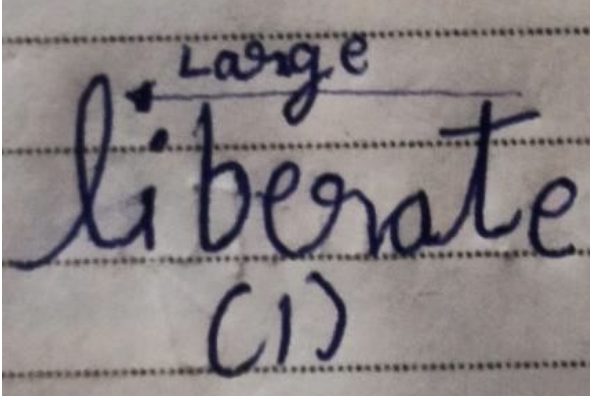 Large
liberate
(1)